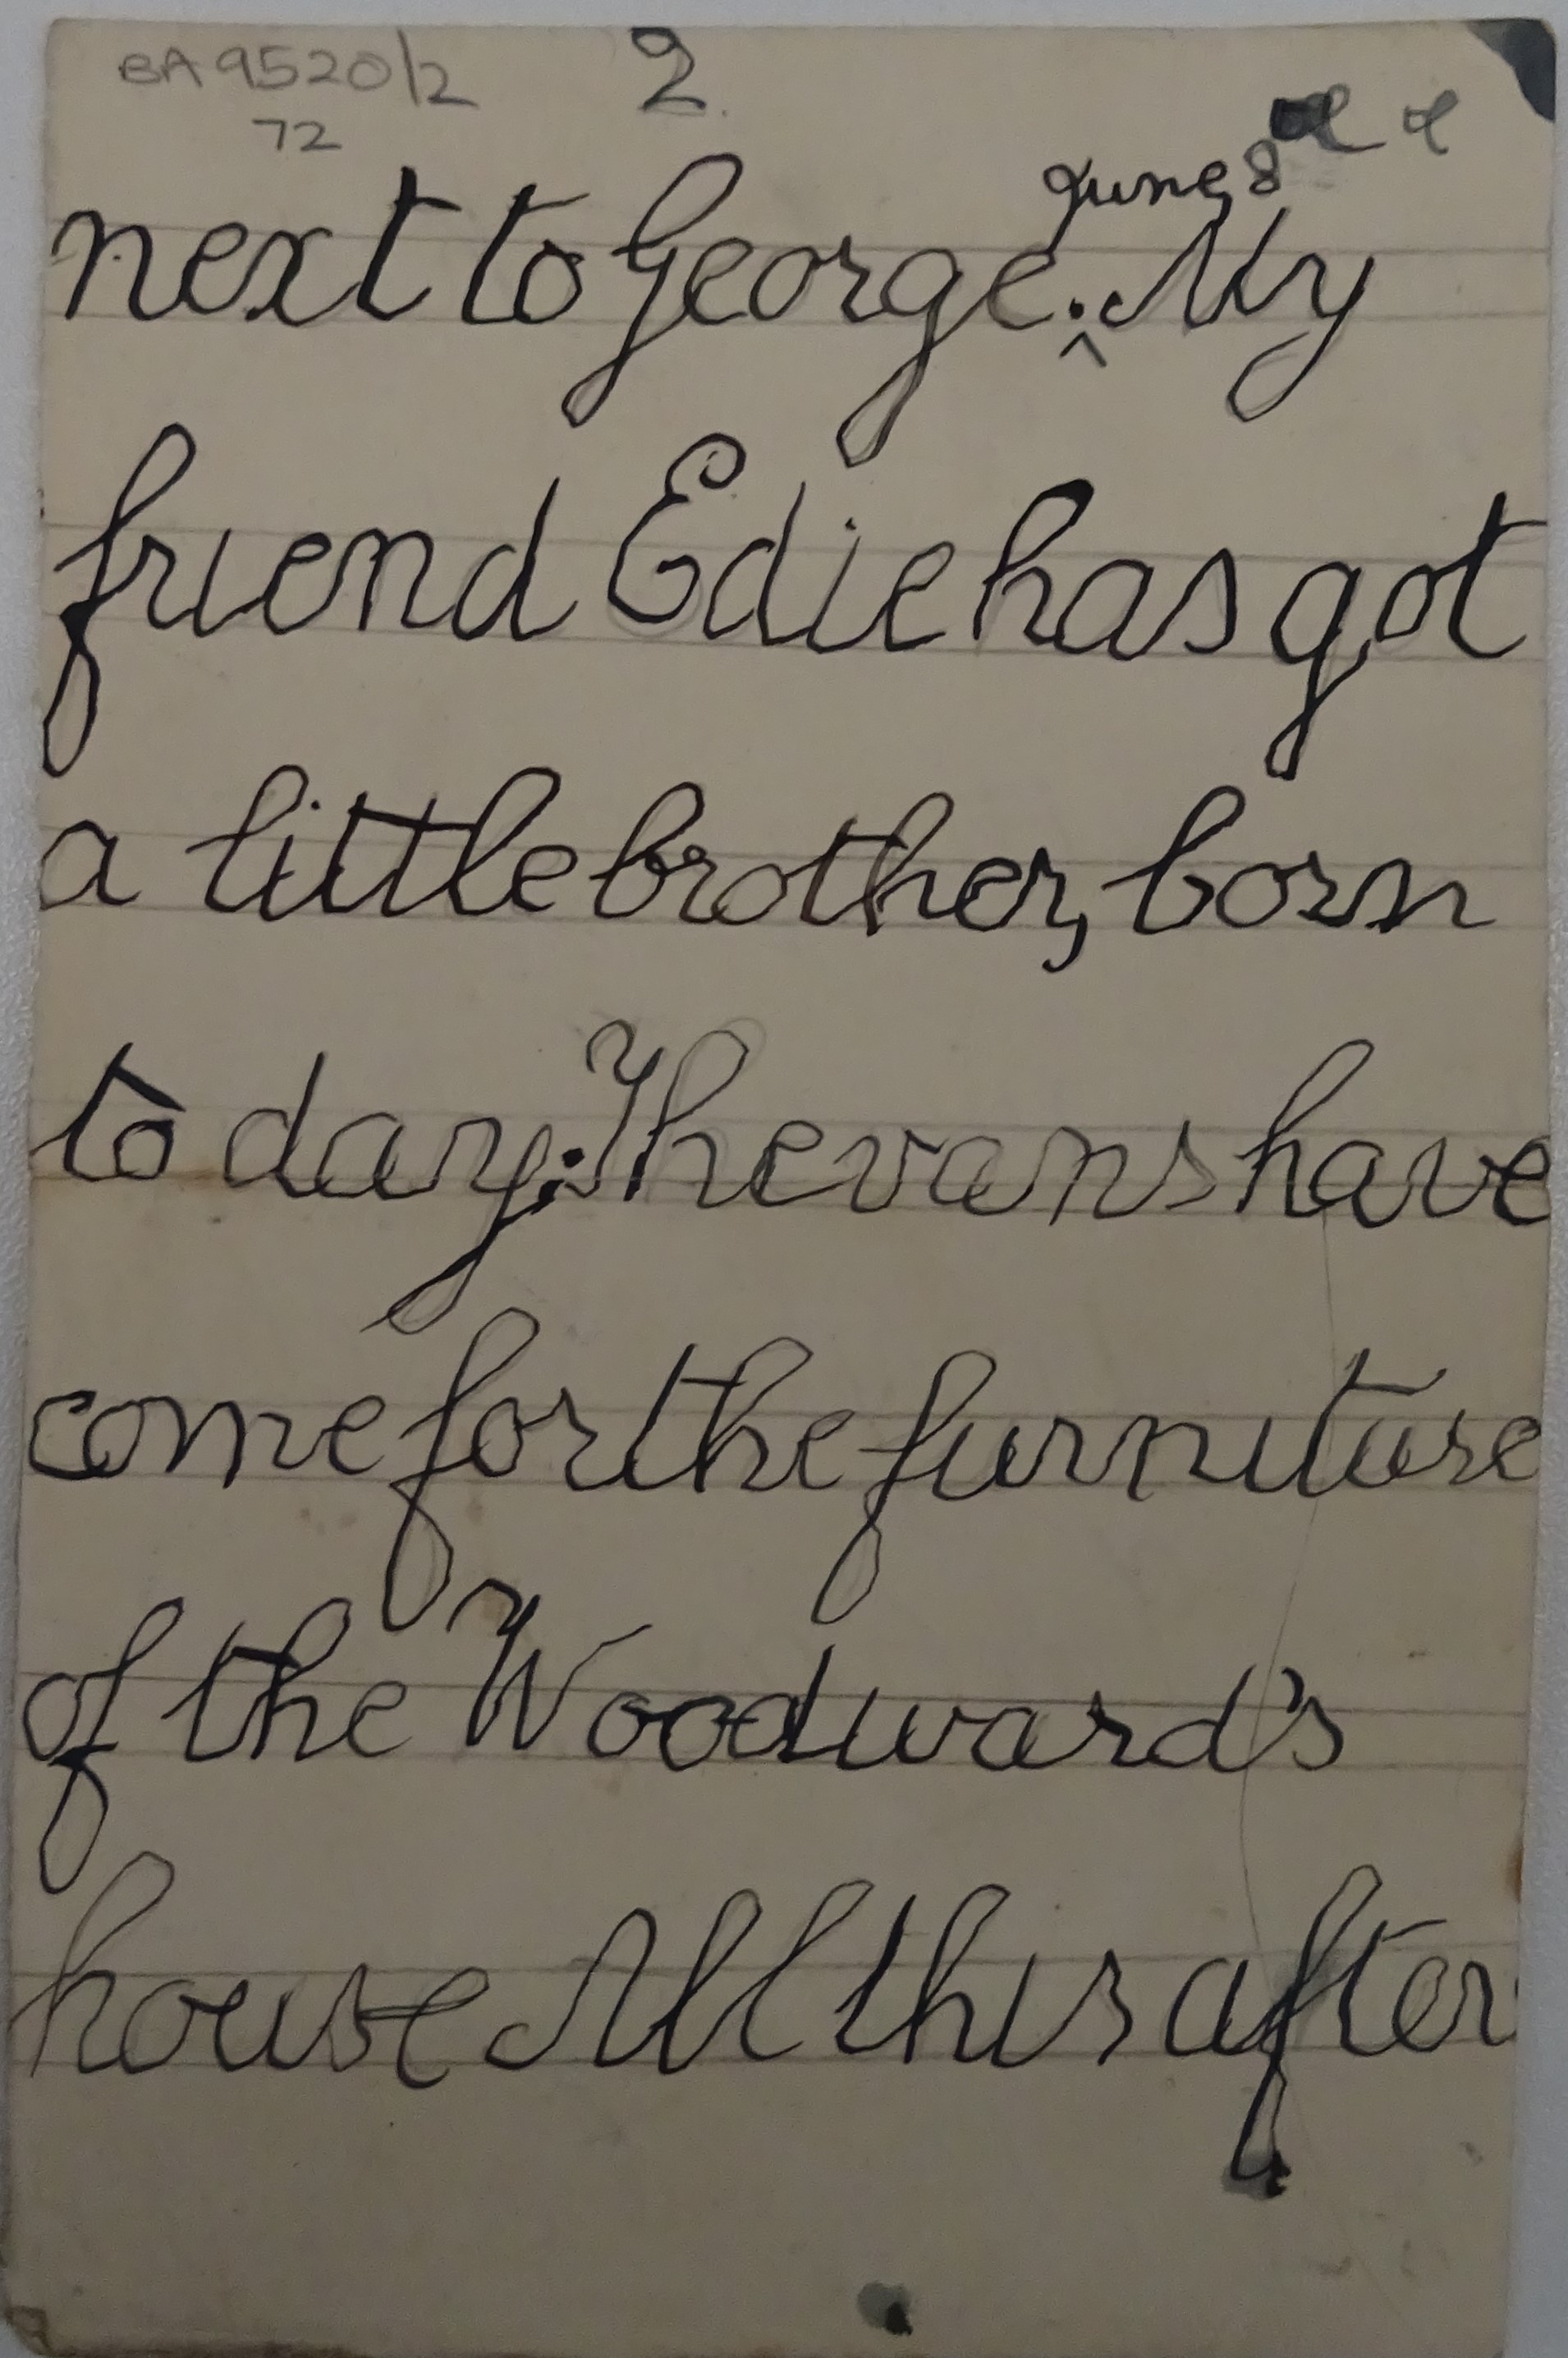 BA 9520/2 2.
72
June, 8
next to George. ^ My
friend Edie has got
a little brother, born
to day. The vans have
come for the furniture
of the Woodward's
house All this after